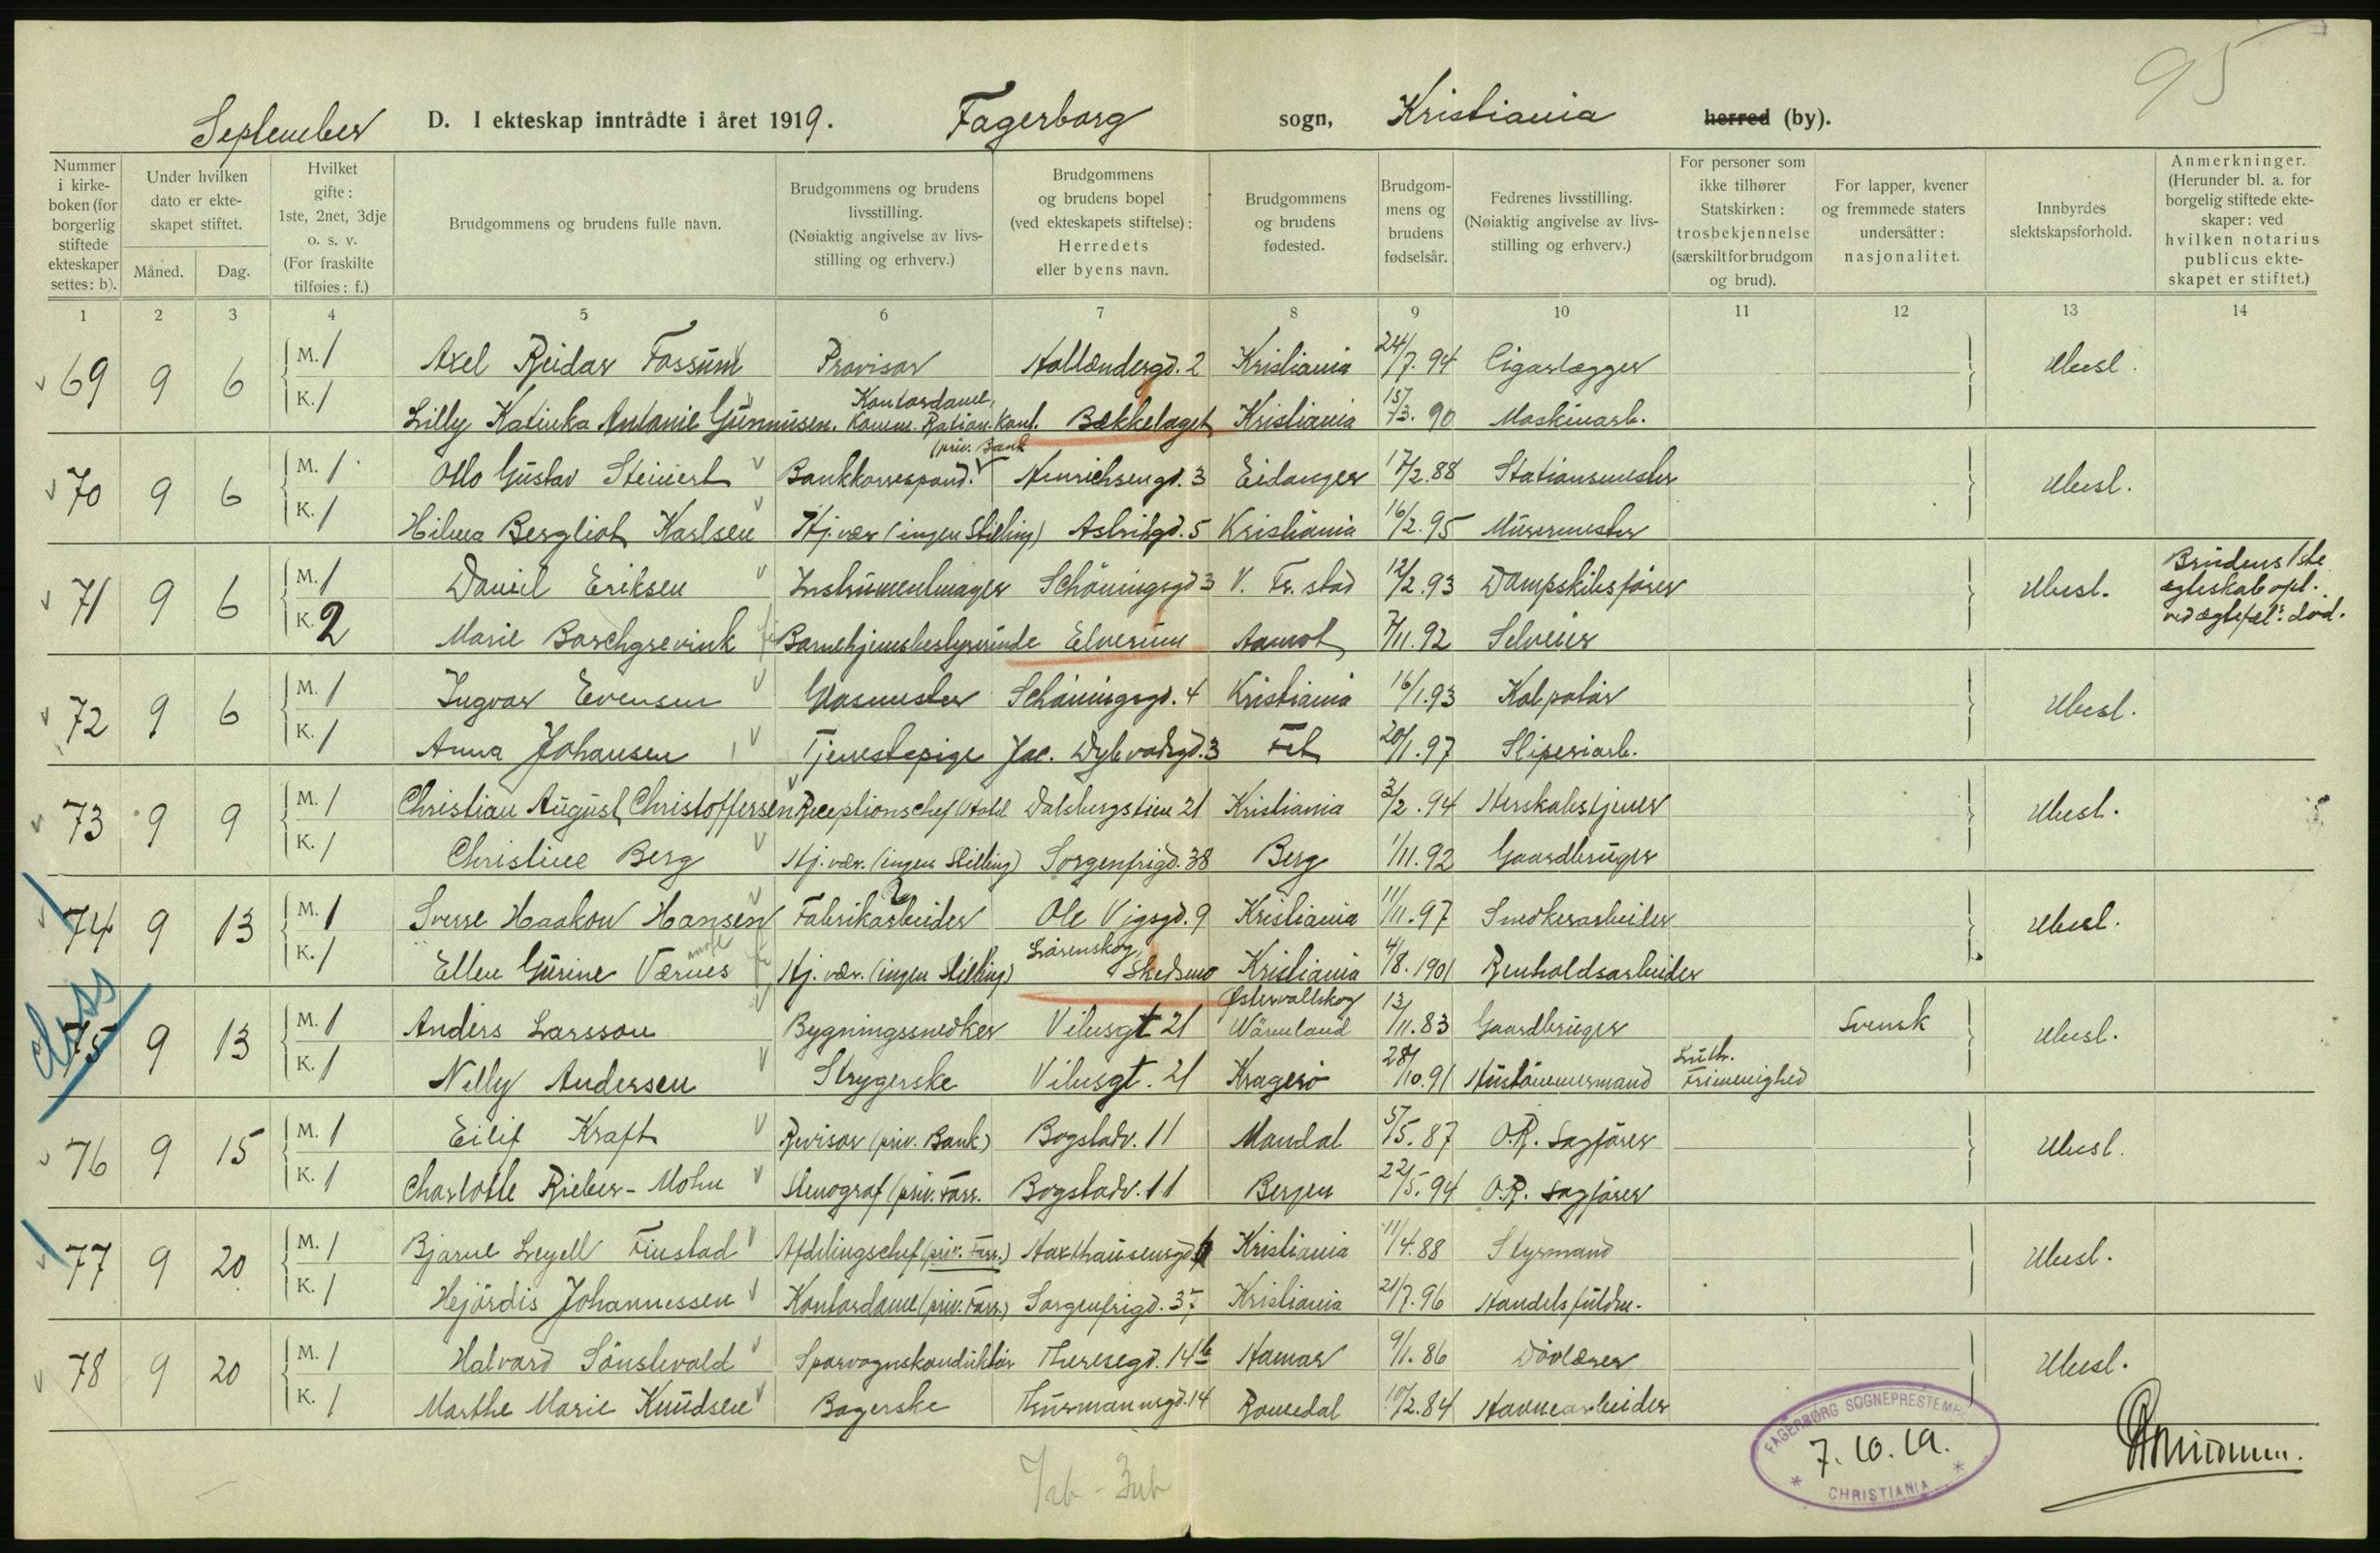 95
September D. I ekteskap inntrådte i året 1919. Fagerborg sogn, Kristiania herred (by).
Nummer i kirkeboken (for borgerlig stiftede ekteskaper settes: b).
Under hvilken dato er ekteskapet stiftet.
Måned.
Dag.
Hvilket gifte: 1ste, 2net, 3dje o. s. v. (For fraskilte tilføies: f.)
Brudgommens og brudens fulle navn.
Brudgommens og brudens livsstilling. (Nøiaktig angivelse av livsstilling og erhverv.)
Brudgommens og brudens bopel (ved ekteskapets stiftelse): Herredets eller byens navn.
Brudgommens og brudens fødested.
Brudgommens og brudens fødselsår.
Fedrenes livsstilling. (Nøiaktig angivelse av livsstilling og erhverv.)
For personer som ikke tilhører Statskirken: trosbekjennelse (særskilt for brudgom og brud).
For lapper, kvener og fremmede staters undersåtter: nasjonalitet.
Innbyrdes slektskapsforhold.
Anmerkninger. (Herunder bl. a. for borgelig stiftede ekteskaper: ved hvilken notarius publicus ekteskapet er stiftet.)
1 2 3 4 5 6 7 8 9 10 11 12 13 14
69 9 6 M. 1 Axel Reidar Fossum Provisor Hollændergd. 2 Kristiania 24/7. 94 Cigarlægger Ubesl.
K. 1 Lilly Katinka Antonie Gunnusen. Kontordame, Komm. Ration. kont. Bækkelaget Kristiania 15/3. 90 Maskinarb.
70 9 6 M. 1 Otto Gustav Steinert Bankkorrespond. (priv. Bank Henrichsengd. 3 Eidanger 17/2. 88 Stationsmester Ubesl.
K. 1 Hilma Bergliot Karlsen Hj. vær (ingen Stilling) Astridgd. 5 Kristiania 16/2. 95 Murermester
71 9 6 M. 1 Daniel Eriksen Instrumentmager Schöningsgd 3 V. Fr. stad 12/2. 93 Dampskibsfører Ubesl. Brudens 1ste egteskab opl. ved ægtefæl: død.
K. 2 Marie Borchgrevink Barnehjemsbestyrerinde Elverum Aamot 7/11. 92 Selveier
72 9 6 M. 1 Ingvar Evensen Glasmester Schöningsgd. 4 Kristiania 16/1. 93 Kolportør Ubesl.
K. 1 Anna Johansen Tjenestepige Jac. Dybvadsgd. 3 Fet 20/1. 97 Sliperiarb.
73 9 9 M. 1 Christian August Christoffersen Receptionschef Hotel Dalsbergstien 21 Kristiania 3/2. 94 Herskabstjener Ubesl.
K. 1 Christine Berg Hj. vær. (ingen Stilling) Sorgenfrigd. 38 Berg 1/11. 92 Gaardbruger
74 9 13 M. 1 Sverre Haakon Hansen Fabrikarbeider Ole Vigsgd. 9 Kristiania 11/11. 97 Snedkerarbeider Ubesl.
K. 1 Ellen Gurine Værnes Hj. vær. (ingen Stilling) Lörenskog, Skedsmo Kristiania 4/8. 1901 Renholdsarbeider
75 9 13 M. 1 Anders Larsson Bygningssnedker Vibesgt 21 Östervallskog Wärmland 13/11. 83 Gaardbruger Svensk Ubesl.
K. 1 Nelly Andersen Strygerske Vibesgt. 21 Kragerö 28/10. 91 Hustömmermand Luth. Frimenighed
76 9 15 M. 1 Eilif Kraft Revisor (priv. Bank) Bogstadv. 11 Mandal 5/5. 87 O.R. Sagfører Ubesl.
K. 1 Charlotte Rieber-Mohn Stenograf (priv. Forr. Bogstadv. 11 Bergen 22/5. 94 O.R. Sagfører
77 9 20 M. 1 Bjarne Leyell Finstad Afdelingschef (priv. Forr.) Haxthausensgd Kristiania 11/4. 88 Styrmand Ubesl.
K. 1 Hejördis Johannessen Kontordame (priv. Forr.) Sorgenfrigd. 37 Kristiania 21/7. 96 Handelsfuldm.
78 9 20 M. 1 Halvard Sönstevold Sporvognskonduktör Theresegd. 14b Hamar 9/1. 86 Dövlærer Ubesl.
K. 1 Marthe Marie Knudsen Bagerske Thurmannsgd. 14 Romedal 10/2. 84 Havnearbeider
FAGERBORG SOGNEPRESTEMB
7. 10. 19.
CHRISTIANIA